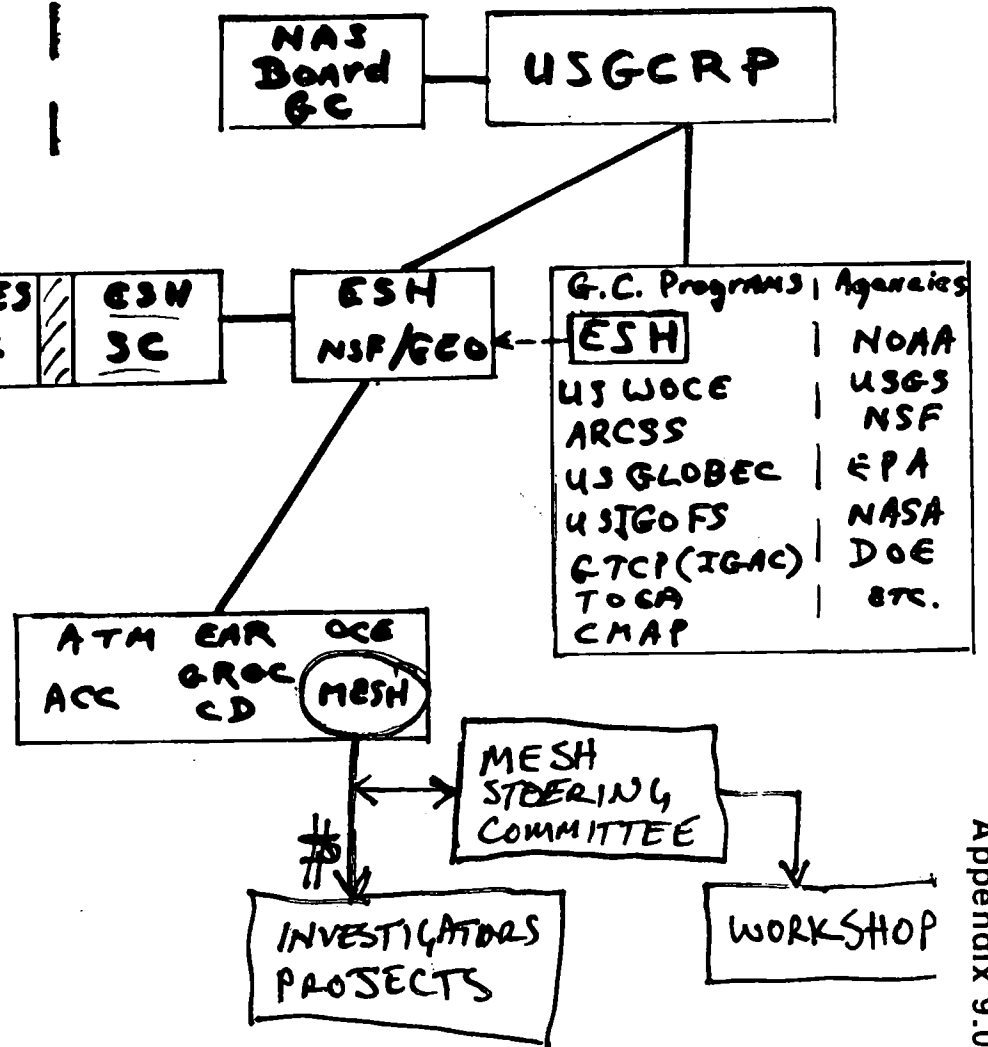 NAS
Board
GC
USGCRP
ES
ESH
SC
ESH
NSF/GEO
G.C. Programs | Agencies
ESH
NOAA
US WOCE
USGS
ARCSS
NSF
US GLOBEC
EPA
USJGOFS
NASA
GTCP (IGAC)
DOE
TOGA
ETC.
CMAP
ATM EAR OCE
ACC
GROC
CD
MESH
MESH
STEERING
COMMITTEE
INVESTIGATORS
PROJECTS
WORKSHOP
Appendix 9.0